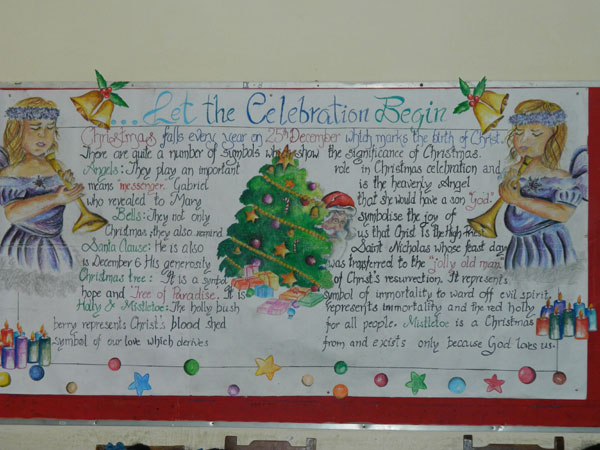 ...Let the Celebration Begin
Christmas falls every year on 25th December which marks the birth of Christ.
There are quite a number of symbols which show the significance of Christmas.
Angels: They play an important role in Christmas celebration and
means messenger. Gabriel is the heavenly Angel
who revealed to Mary that she would have a son 'God'.
Bells: They not only symbolise the joy of
Christmas, they also remind us that Christ is the High Priest
Santa Clause: He is also Saint Nicholas whose feast day
is December 6 His generosity was transferred to the "jolly old man"
Christmas tree: It is a symbol of Christ's resurrection. It represents
hope and Tree of Paradise. It is symbol of immortality to ward off evil spirit
Holly & Mistletoe: The holly bush represents immortality and the red holly
berry represents Christ's blood shed for all people. Mistletoe is a Christmas
symbol of our love which derives from and exists only because God loves us.